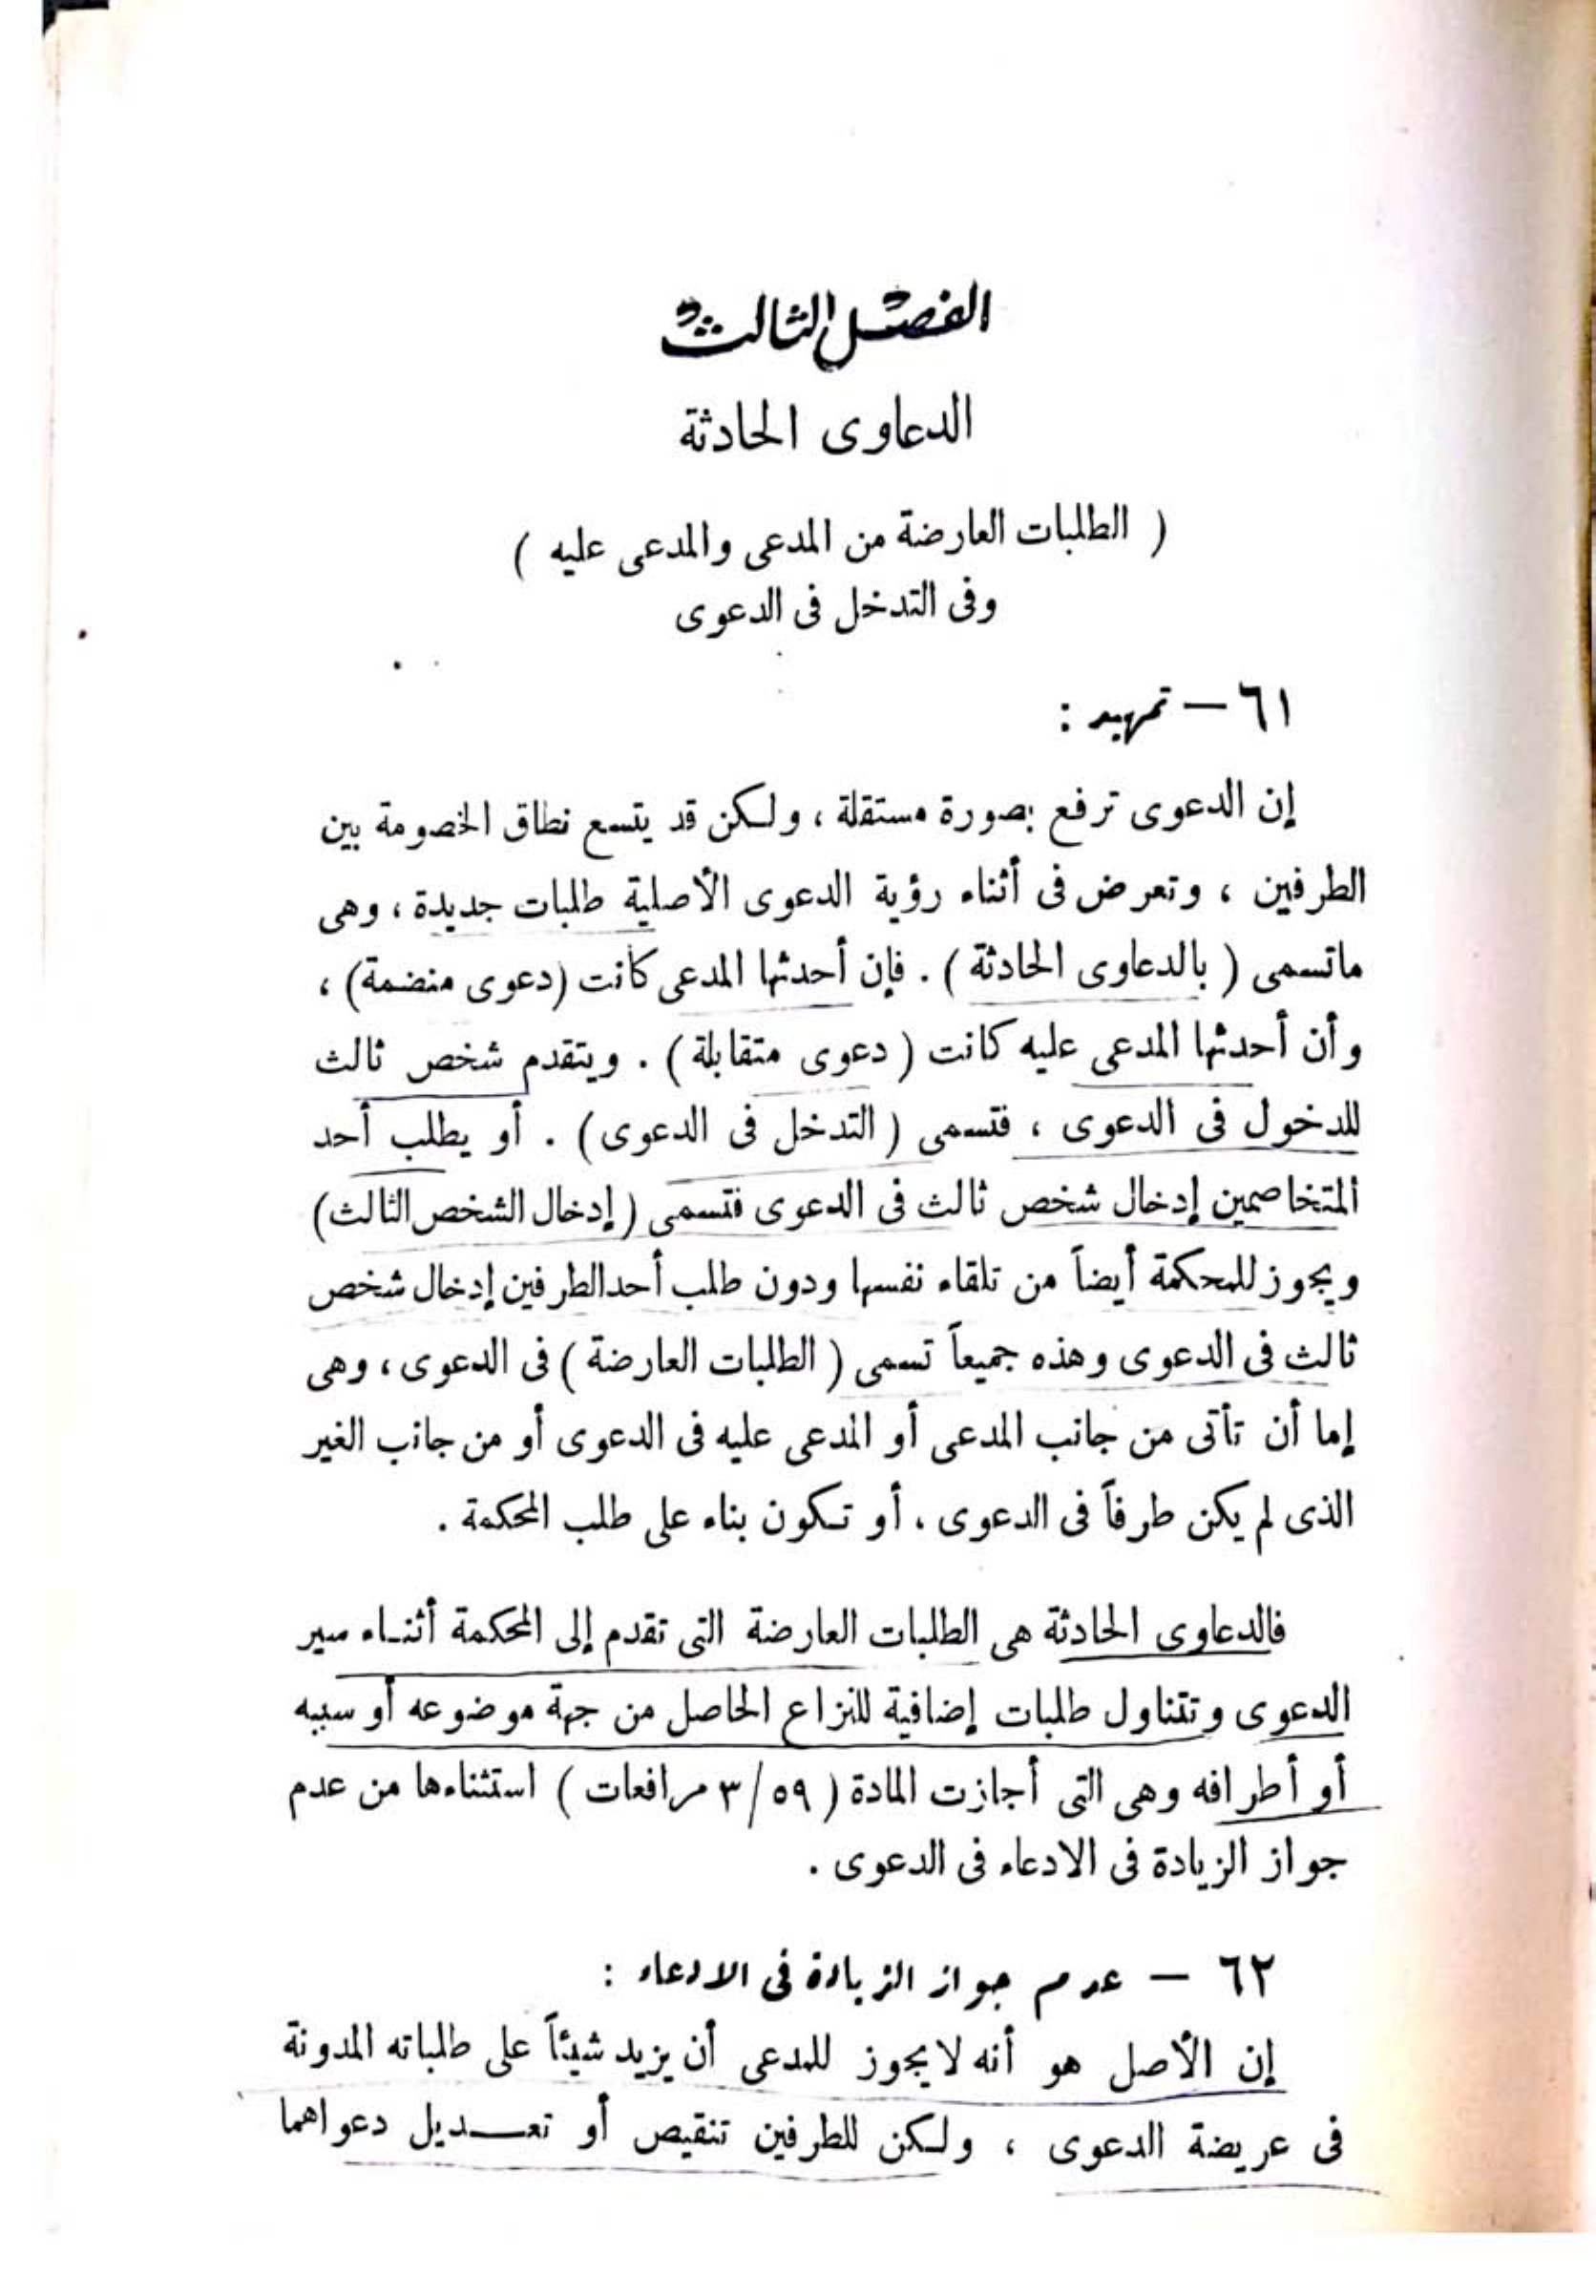 الفصل الثالث
الدعاوى الحادثة
( الطلبات العارضة من المدعى والمدعى عليه )
وفى التدخل فى الدعوى
٦١ – تمهيد :
إن الدعوى ترفع بصورة مستقلة ، ولكن قد يتسع نطاق الخصومة بين
الطرفين ، وتعرض فى أثناء رؤية الدعوى الأصلية طلبات جديدة ، وهى
ماتسمى ( بالدعاوى الحادثة ) . فإن أحدثها المدعى كانت (دعوى منضمة) ،
وأن أحدثها المدعى عليه كانت ( دعوى متقابلة ) . ويتقدم شخص ثالث
للدخول فى الدعوى ، فتسمى ( التدخل فى الدعوى ) . أو يطلب أحد
المتخاصمين إدخال شخص ثالث فى الدعوى فتسمى ( إدخال الشخص الثالث )
ويجوز للمحكمة أيضاً من تلقاء نفسها ودون طلب أحد الطرفين إدخال شخص
ثالث فى الدعوى وهذه جميعاً تسمى ( الطلبات العارضة ) فى الدعوى ، وهى
إما أن تأتى من جانب المدعى أو المدعى عليه فى الدعوى أو من جانب الغير
الذى لم يكن طرفاً فى الدعوى ، أو تكون بناء على طلب المحكمة .
فالدعاوى الحادثة هى الطلبات العارضة التى تقدم إلى المحكمة أثناء سير
الدعوى وتتناول طلبات إضافية للنزاع الحاصل من جهة موضوعه أو سببه
أو أطرافه وهى التى أجازت المادة ( ٥٩/ ٣ مرافعات ) استثناءها من عدم
جواز الزيادة فى الادعاء فى الدعوى .
٦٢ – عدم جواز الزيادة فى الادعاء :
إن الأصل هو أنه لايجوز للمدعى أن يزيد شيئاً على طلباته المدونة
فى عريضة الدعوى ، ولكن للطرفين تنقيص أو تعديل دعواهما